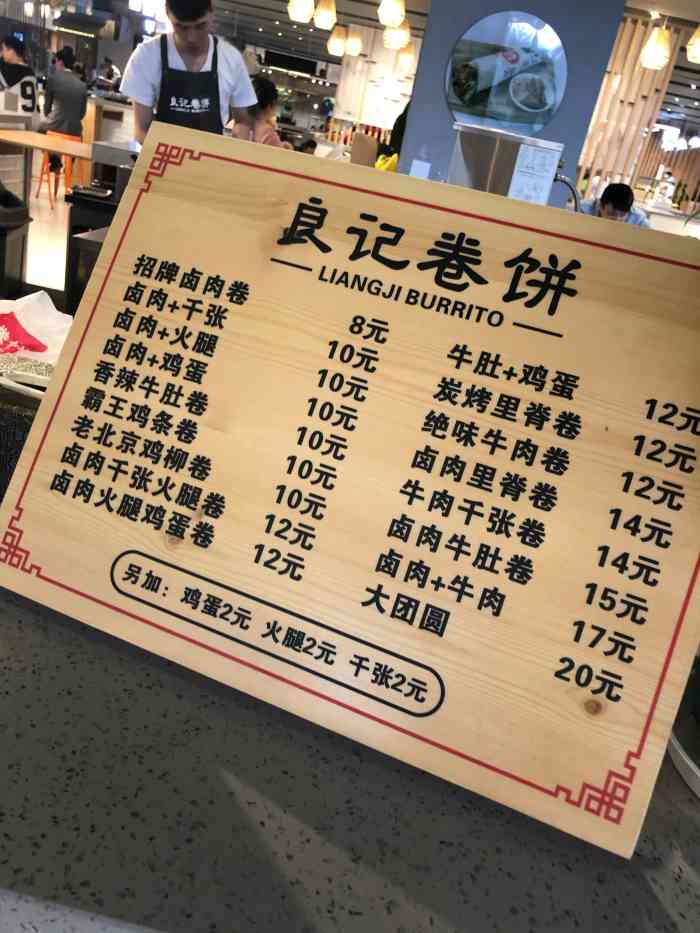 9
良记卷饼
LIANGJI BURRITO
良记卷饼
LIANGJI BURRITO
招牌卤肉卷 8元
卤肉+千张 10元
卤肉+火腿 10元
卤肉+鸡蛋 10元
香辣牛肚卷 10元
霸王鸡条卷 10元
老北京鸡柳卷 10元
卤肉千张火腿卷 12元
卤肉火腿鸡蛋卷 12元
牛肚+鸡蛋 12元
炭烤里脊卷 12元
绝味牛肉卷 12元
卤肉里脊卷 14元
牛肉千张卷 14元
卤肉牛肚卷 15元
卤肉+牛肉 17元
大团圆 20元
另加：鸡蛋2元 火腿2元 千张2元